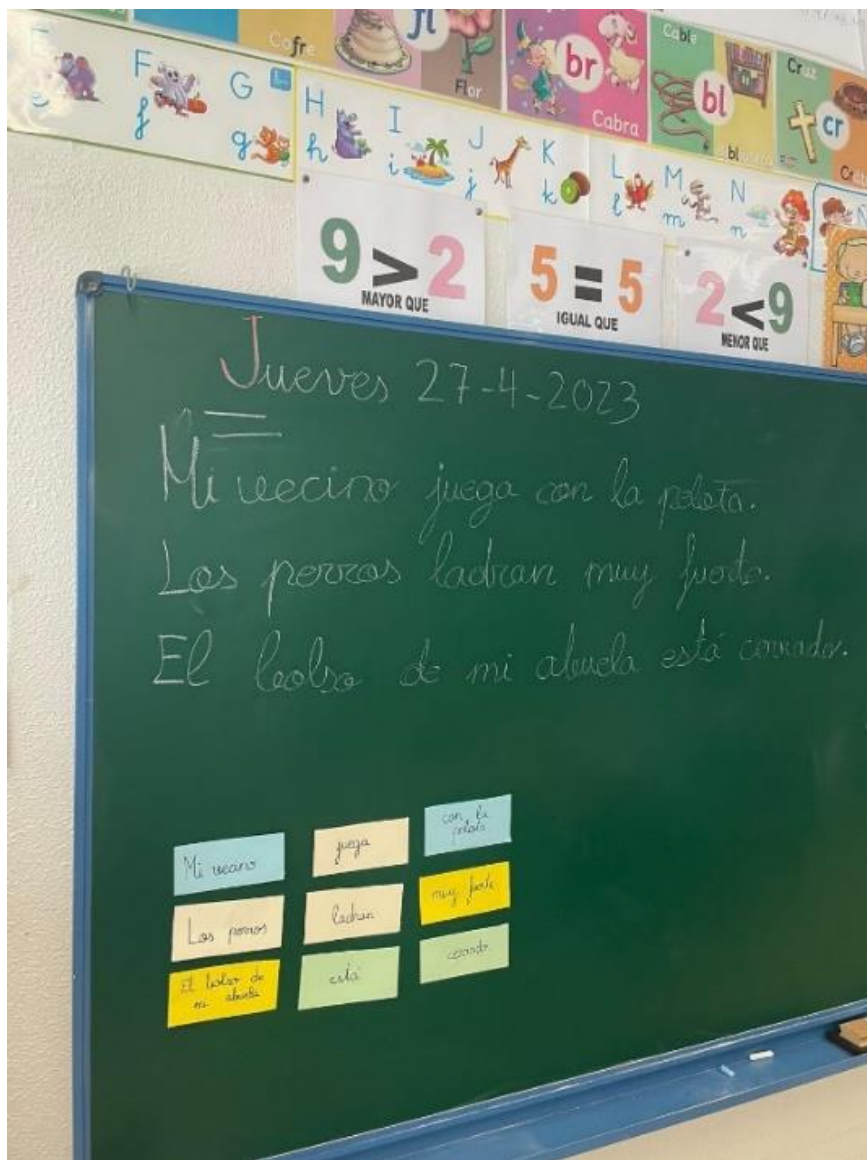 Cofre
fl
Flor
br
Cabra
Cable
bl
cr
E
F
G
H
I
J
K
L
M
N
e
f
g
h
i
j
k
l
m
n
9 > 2
MAYOR QUE
5 = 5
IGUAL QUE
2 < 9
MENOR QUE
Jueves 27-4-2023
Mi vecino juega con la pelota.
Los perros ladran muy fuerte.
El bolso de mi abuela está cerrado.
Mi vecino
juega
con la
pelota
Los perros
ladran
muy fuerte
El bolso de
mi abuela
está
cerrado